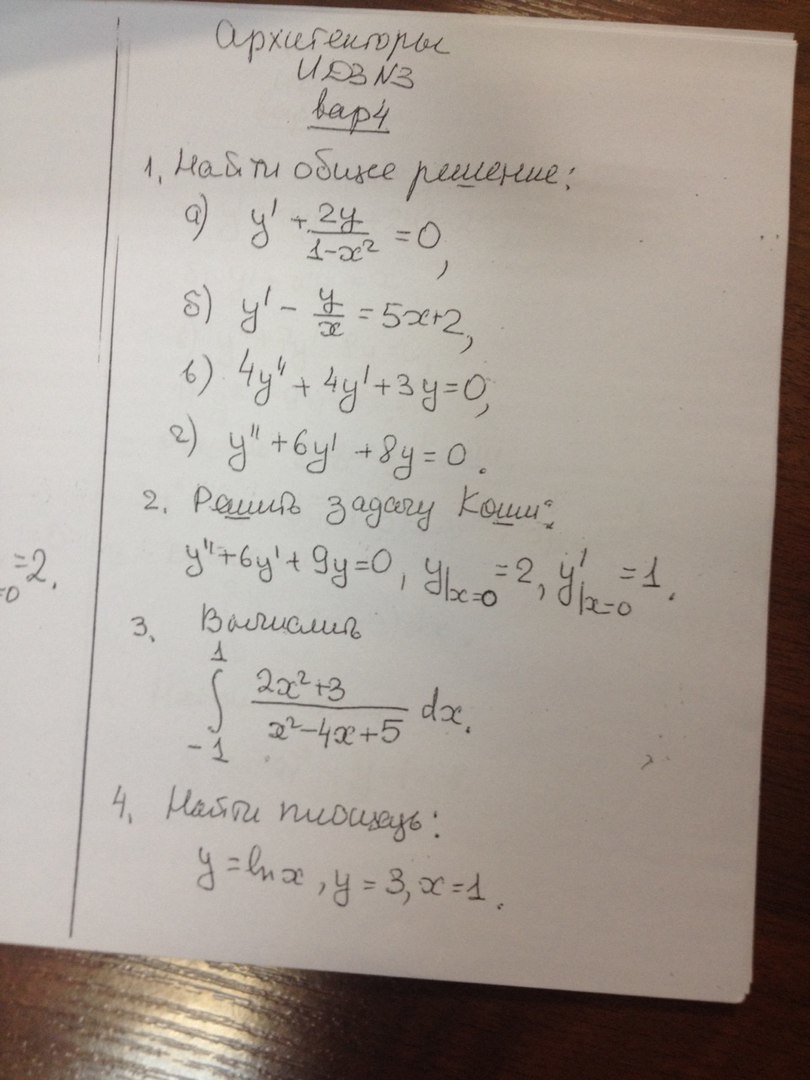 Архитекторы
ИДЗ №3
вар 4
1. Найти общее решение:
а) y' + 2y/(1-x²) = 0,
б) y' - y/x = 5x+2,
в) 4y'' + 4y' + 3y = 0,
г) y'' + 6y' + 8y = 0.
2. Решить задачу Коши:
y'' + 6y' + 9y = 0, y|x=0 = 2, y'|x=0 = 1.
=0 =2.
3. Вычислить
∫₋₁¹ (2x²+3)/(x²-4x+5) dx.
4. Найти площадь:
y = ln x, y = 3, x = 1.